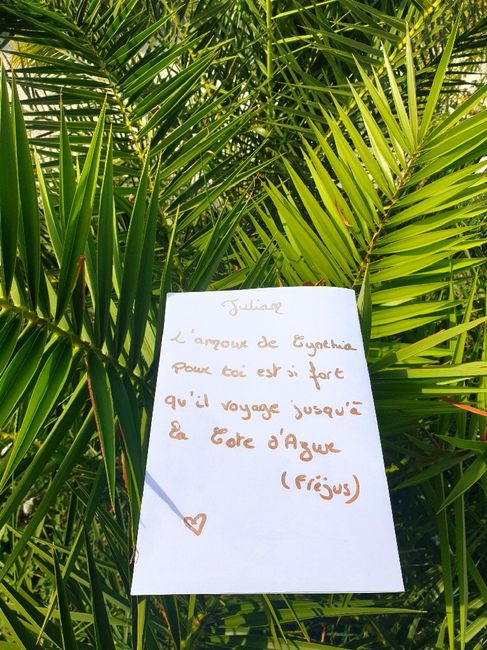 Julian
L'amour de Cynthia
pour toi est si fort
qu'il voyage jusqu'à
la Cote d'Azur
(Fréjus)